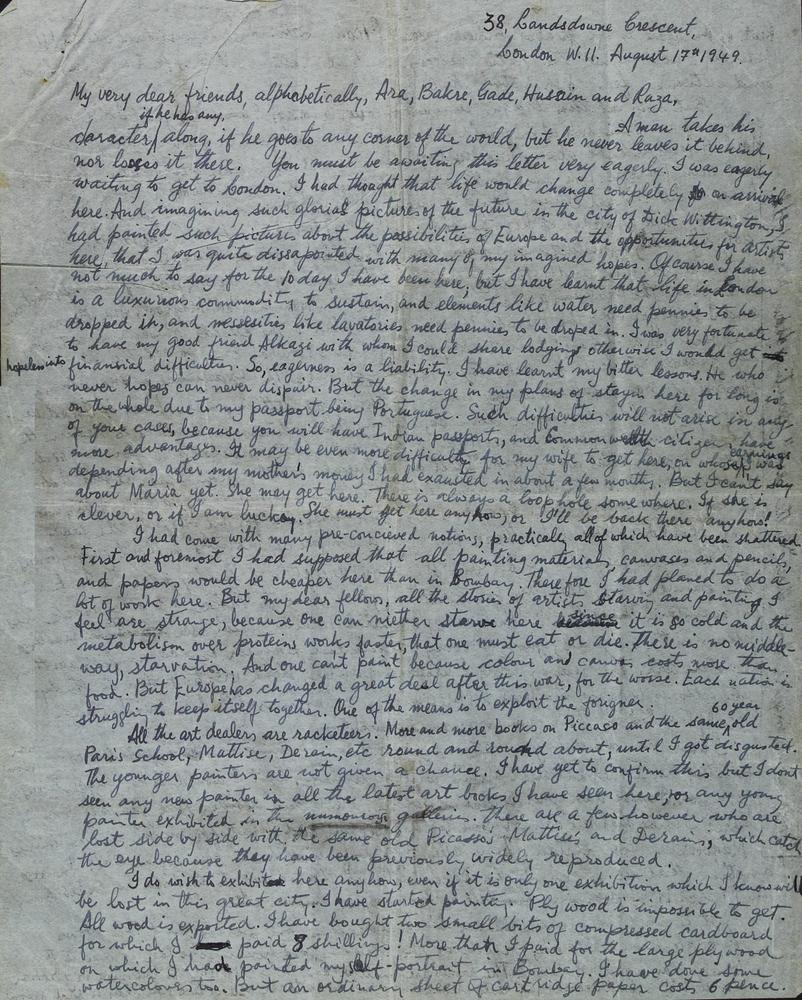 38, Landsdowne Crescent,
London W.11. August 17th 1949.
My very dear friends, alphabetically, Ara, Bakre, Gade, Hussain and Raza,
if he has any,
A man takes his
character / along, if he goes to any corner of the world, but he never leaves it behind,
nor losses it there. You must be awaiting this letter very eagerly. I was eagerly
waiting to get to London. I had thought that life would change completely on arrival
here. And imagining such glorial pictures of the future in the city of Dick Wittington, I
had painted such pictures about the possibilities of Europe and the opportunities for artists
here, that I was quite dissapointed with many of my imagined hopes. Of course I have
not much to say for the 10 day I have been here, but I have learnt that life in London
is a luxurious commundity to sustain, and elements like water need pennies to be
dropped in, and nessesities like lavatories need pennies to be droped in. I was very fortunate
to have my good friend Alkazi with whom I could share lodgings otherwise I would get
hopeless into financial difficulties. So, eagerness is a liability. I have learnt my bitter lessons. He who
never hopes can never dispair. But the change in my plans of stayin here for long is
on the whole due to my passport being Portuguese. Such difficulties will not arise in any
of your cases, because you will have Indian passports, and Commonwelth citizens have
more advantages. It may be even more difficult for my wife to get here, on whose earnings I was
depending after my mother's money I had exausted in about a few months. But I can't say
about Maria yet. She may get here. There is always a loophole somewhere. If she is
clever, or if I am luckey. She must get here anyhow, or I'll be back there anyhow!
I had come with many pre-concieved notions, practically all of which have been shattered.
First and foremost I had supposed that all painting materials, canvases and pencils,
and papers would be cheaper here than in Bombay. Therefore I had planed to do a
lot of work here. But my dear fellows, all the stories of artists starving and painting I
feel are strange, because one can niether starve here it is so cold and the
metabolism over proteins works faster, that one must eat or die. There is no middle-
way, starvation. And one can't paint because colour and canvas costs more than
food. But Europe has changed a great deal after this war, for the worse. Each nation is
struggling to keep itself together. One of the means is to exploit the forigner.
60 year
All the art dealers are racketeers. More and more books on Piccaso and the same, old
Paris School, Mattise, Derain, etc round and round about, until I got disgusted.
The younger painters are not given a chance. I have yet to confirm this but I dont
seen any new painter in all the latest art books I have seen here, or any young
painter exhibited in the numourous galleries. There are a few however who are
lost side by side with the same old Picasso's Mattises and Derains, which catch
the eye because they have been previously widely reproduced.
I do wish to exhibit here anyhow, even if it is only one exhibition which I know will
be lost in this great city. I have started painting. Ply wood is impossible to get.
All wood is exported. I have bought two small bits of compressed cardboard
for which I paid 8 shillings! More than I paid for the large plywood
on which I had painted my self-portrait in Bombay. I have done some
watercolours too. But an ordinary sheet of cartridge paper costs 6 pence.